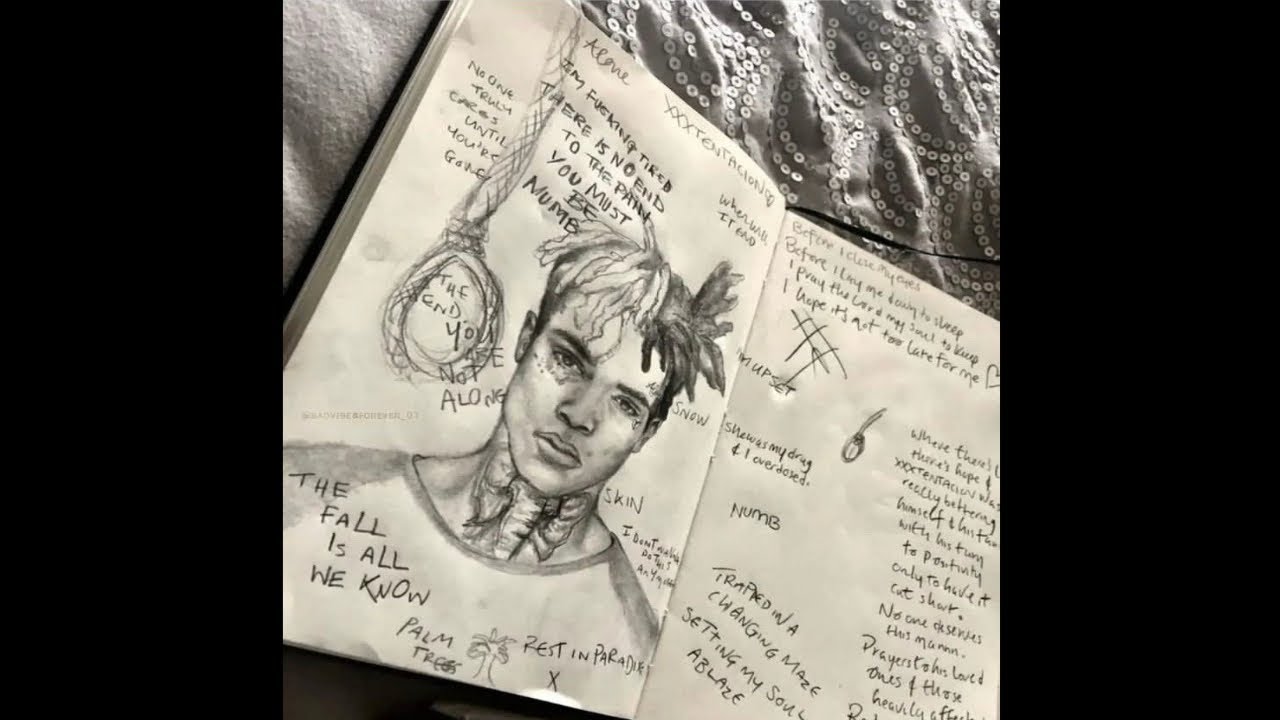 Alone
NO ONE
TRULY
CARES
UNTIL
YOU'RE
GONE
I'M FUCKING TIRED
THERE IS NO END
TO THE PAIN
YOU MUST
BE
NUMB
XXXTENTACION
WHEN WILL
IT END
THE
END
YOU
ARE
NOT
ALONG
@BADVIBEFOREVER_07
SNOW
SKIN
I DONT
DO THIS
THE
FALL
IS ALL
WE KNOW
PALM
TREES
REST IN PARADISE
X
Before I close my eyes
Before I lay me down to sleep
I pray the lord my soul to keep
I hope it's not too late for me
I'M UPSET
She was my drug
& I overdosed.
NUMB
TRAPPED IN A
CHANGING MAZE
SETTING MY SOUL
ABLAZE
where there's
there's hope &
XXXTENTACION was
really bettering
himself & his
with his turn
to positivity
only to have it
cut short.
No one deserves
this mannn.
Prayers to his loved
ones & those
heavily